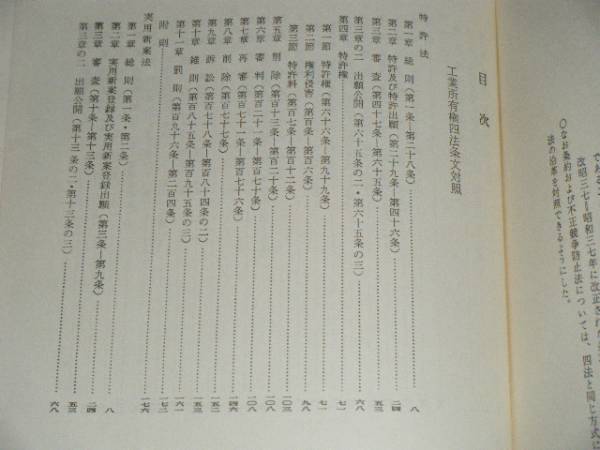 で対照
改昭三七—昭和三七年に改正され
○なお条約および不正競争防止法については、四法と同じ方式に
法の沿革を対照できるようにした。
目次
工業所有権四法条文対照
特許法
第一章 総則(第一条—第二十八条)………八
第二章 特許及び特許出願(第二十九条—第四十六条)………二四
第三章 審査(第四十七条—第六十五条)………五三
第三章の二 出願公開(第六十五条の二・第六十五条の三)………六八
第四章 特許権………七一
第一節 特許権(第六十六条—第九十九条)………七一
第二節 権利侵害(第百条—第百六条)………九八
第三節 特許料(第百七条—第百十二条)………一〇三
第五章 削除(第百十三条—第百二十条)………一〇八
第六章 審判(第百二十一条—第百七十条)………一〇八
第七章 再審(第百七十一条—第百七十六条)………一四六
第八章 削除(第百七十七条)………一五二
第九章 訴訟(第百七十八条—第百八十四条の二)………一五二
第十章 雑則(第百八十五条—第百九十五条の三)………一五三
第十一章 罰則(第百九十六条—第二百四条)………一六一
附則………一七二
実用新案法………一七六
第一章 総則(第一条・第二条)………八
第二章 実用新案登録及び実用新案登録出願(第三条—第九条)………二四
第三章 審査(第十条—第十三条)………五三
第三章の二 出願公開(第十三条の二・第十三条の三)………六八